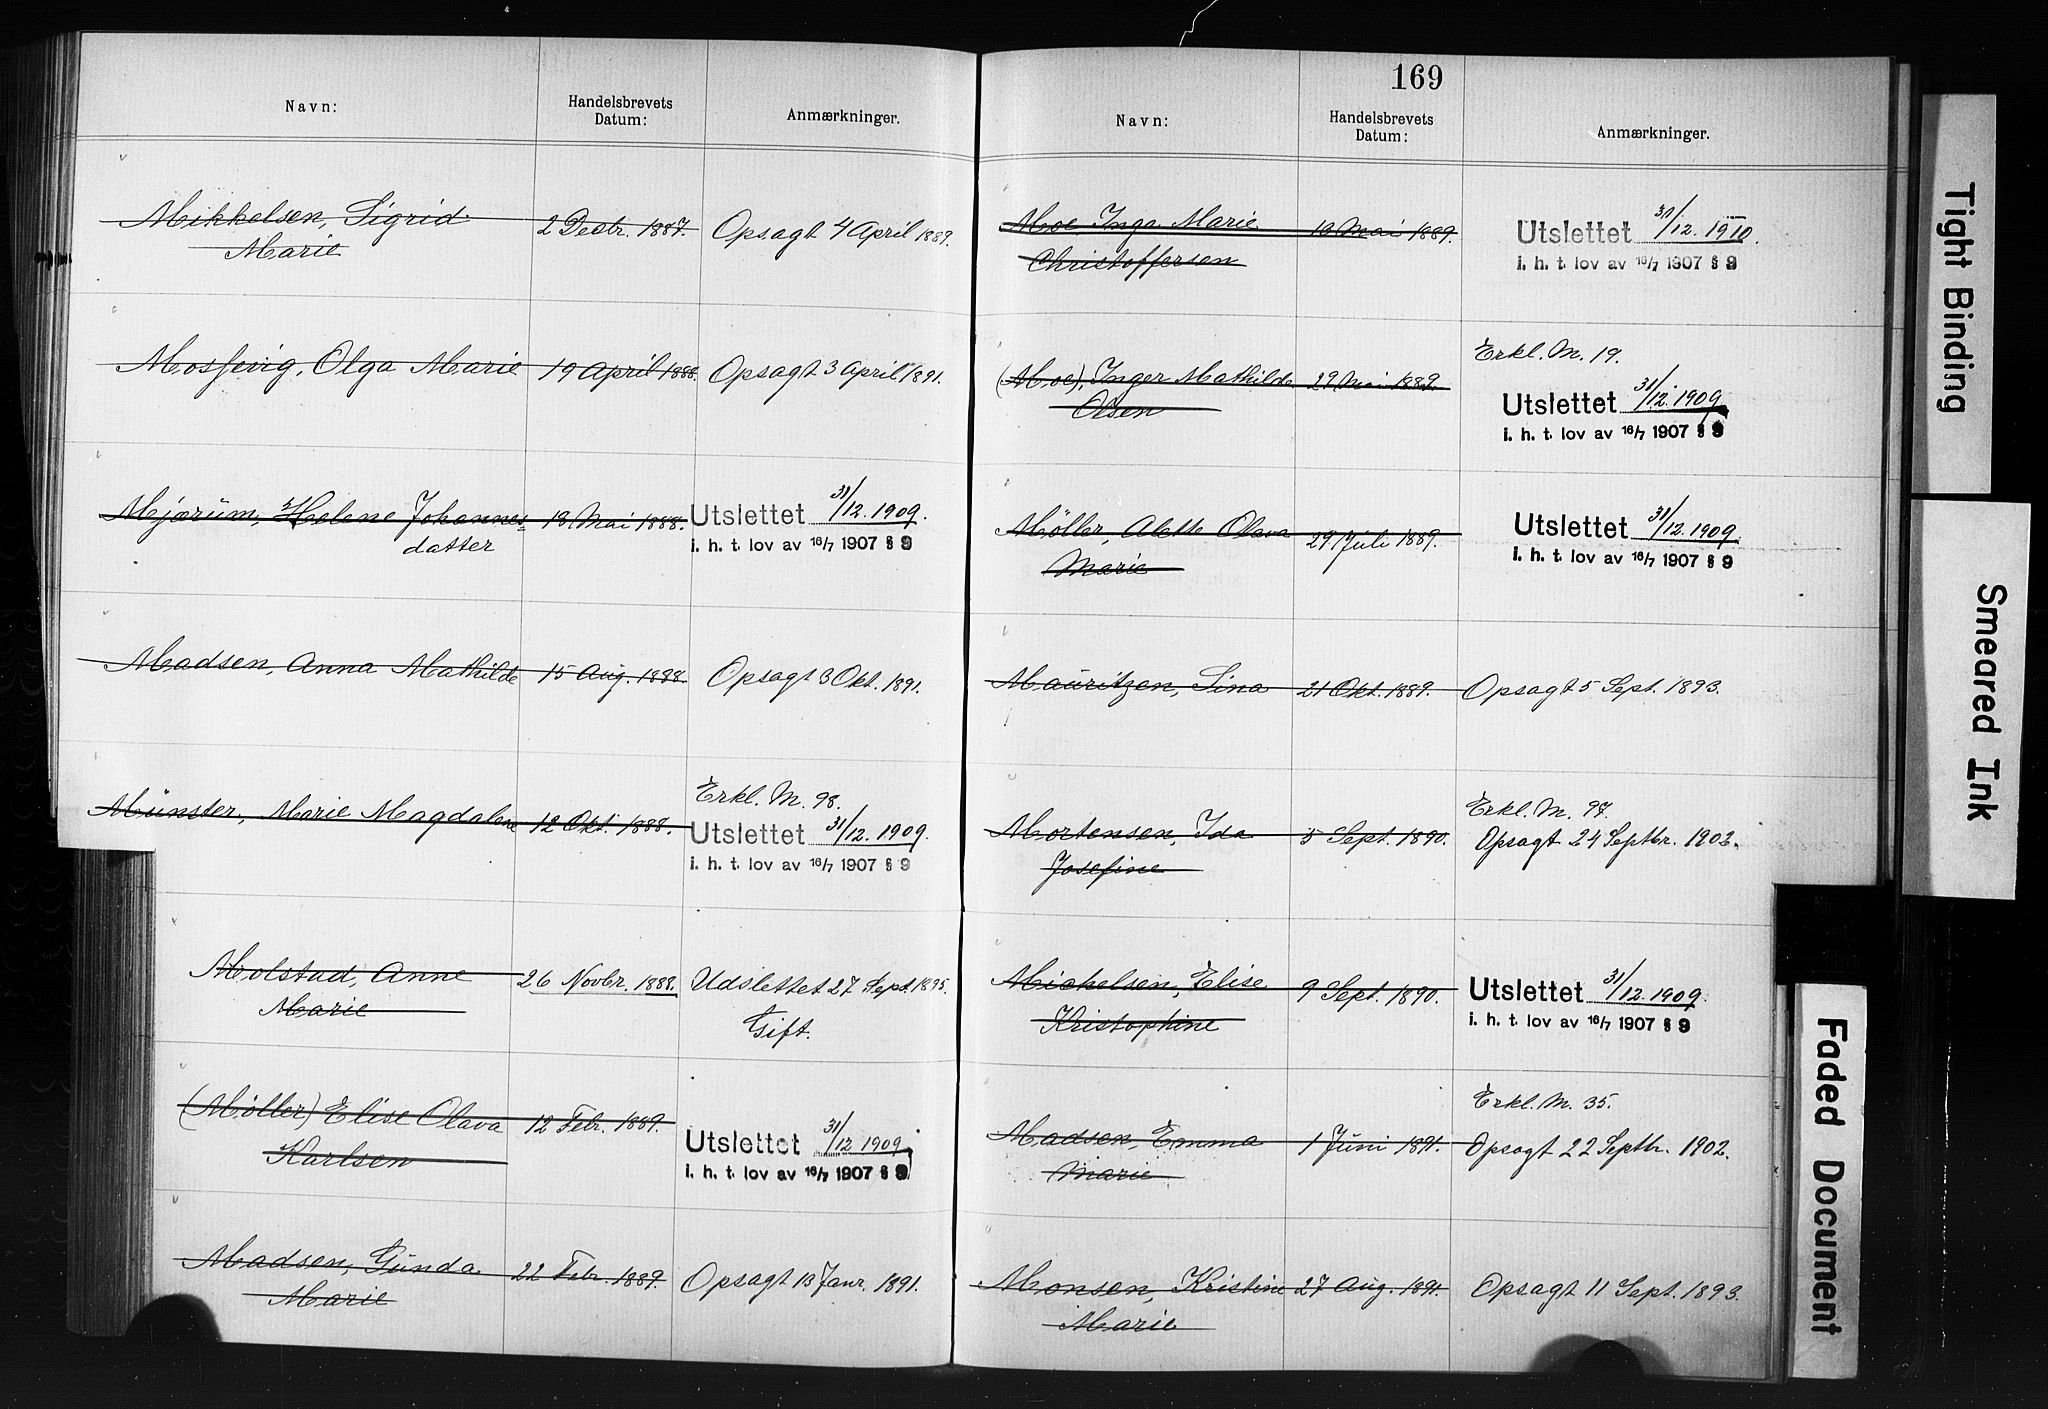 Navn:
Handelsbrevets
Datum:
Anmærkninger.
Mikkelsen, Sigrid 2 Decbr. 1887. Opsagt 4 April 1889.
Marie
Mosfevig, Olga Marie 19 April 1888. Opsagt 3 April 1891.
Mjørüm, Helene Johannes= 18 Mai 1888. Utslettet 31/12. 1909.
datter i. h. t. lov av 16/7 1907 § 9
Madsen, Anna Mathilde 15 Aug. 1888. Opsagt 3 Okt. 1891.
Erkl. M. 98.
Münster, Marie Magdalene 12 Okt. 1888. Utslettet 31/12. 1909.
i. h. t. lov av 16/7 1907 § 9
Molstad, Anne 26 Novbr. 1888. Udslettet 27 Sept. 1895.
Marie Gift.
(Møller) Elise Olava 12 Febr. 1889. Utslettet 31/12 1909.
Karlsen i. h. t. lov av 16/7 1907 § 9
Madsen, Günda 22 Febr. 1889. Opsagt 13 Janr. 1891.
Marie
169
Navn:
Handelsbrevets
Datum:
Anmærkninger.
Moe Inga Marie 13 Mai 1889. Utslettet 31/12. 1910.
Christoffersen i. h. t. lov av 16/7 1907 § 9
Erkl. M. 19.
(Moe), Inger Mathilde 29 Mai 1889. Utslettet 31/12. 1909
Olsen i. h. t. lov av 16/7 1907 § 9
Møller, Aleth Olava 29 Juli 1889. Utslettet 31/12. 1909.
Marie i. h. t. lov av 16/7 1907 § 9
Mauritzen, Lina 21 Okt. 1889. Opsagt 5 Sept. 1893.
Erkl. M. 97.
Mortensen, Ida 5 Sept. 1890. Opsagt 24 Septbr. 1902.
Josefine
Michelsen, Elise 9 Sept. 1890. Utslettet 31/12. 1909.
Kristophine i. h. t. lov av 16/7 1907 § 9
Erkl. M. 35.
Madsen, Emma 1 Jüni 1891. Opsagt 22 Septbr. 1902.
Marie
Monsen, Kristine 27 Aug. 1891. Opsagt 11 Sept. 1893.
Marie
Tight Binding
Smeared Ink
Faded Document